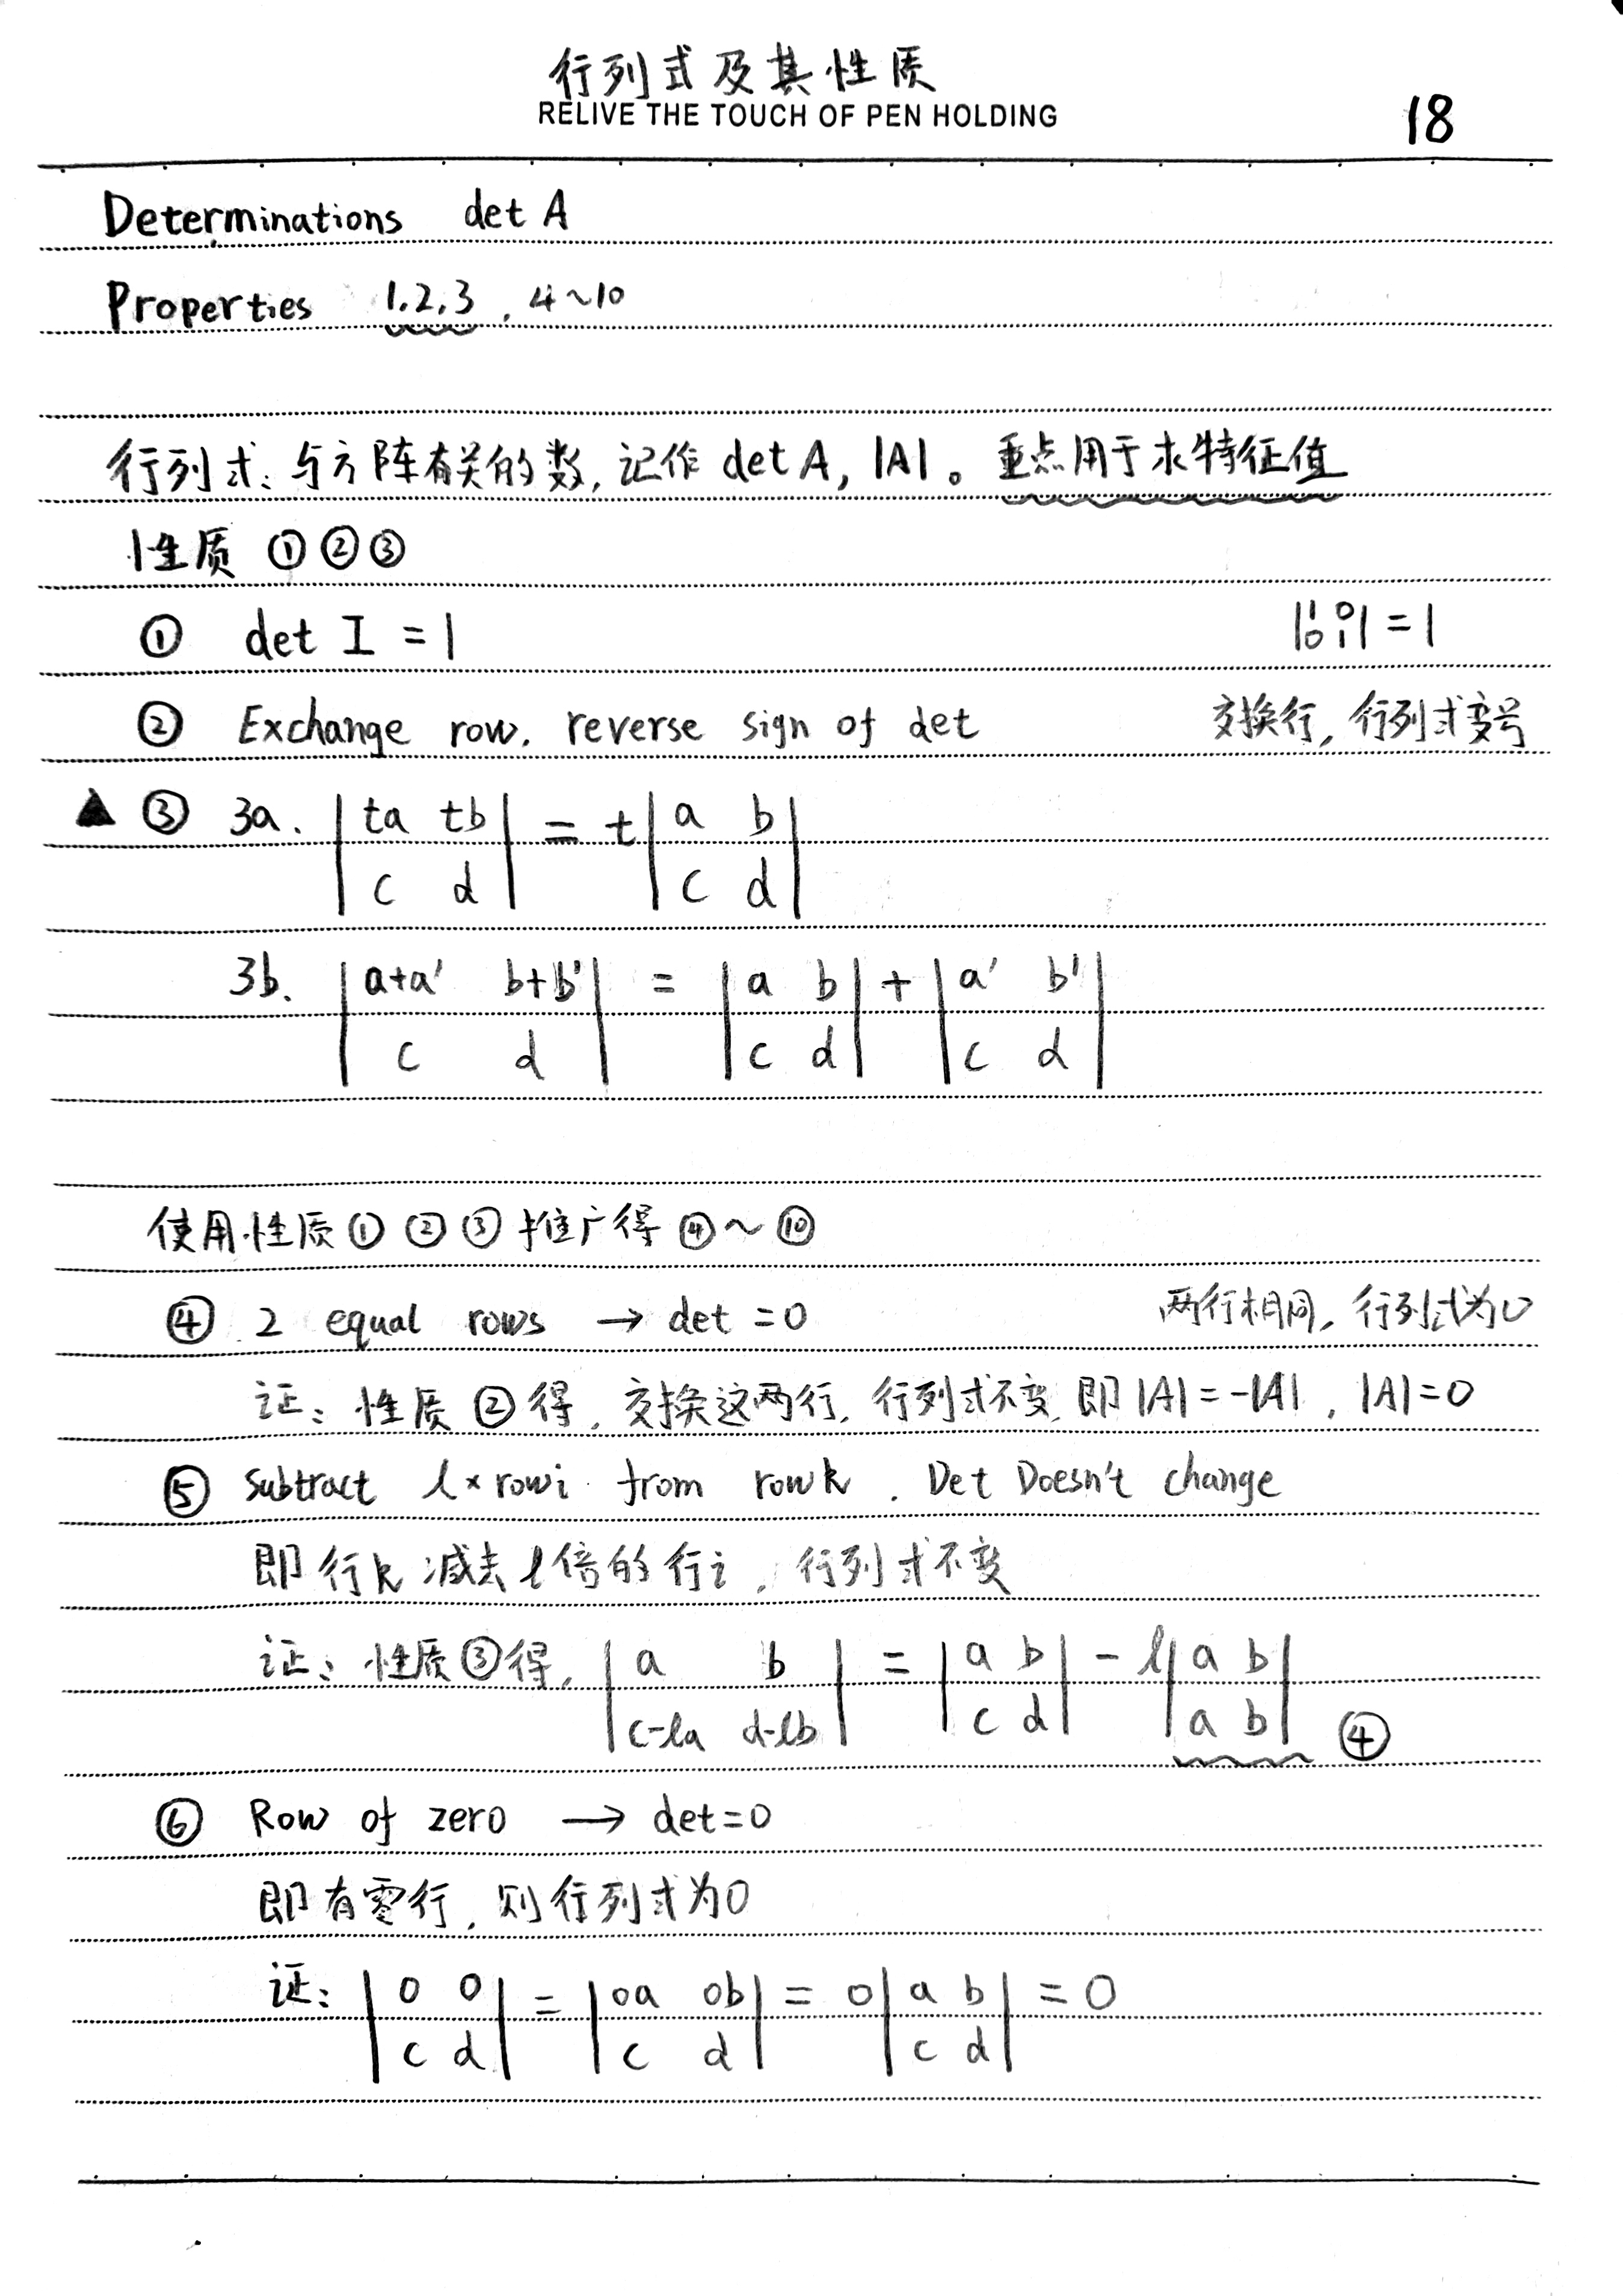 行列式及其性质
RELIVE THE TOUCH OF PEN HOLDING
18
Determinations det A
Properties 1.2.3 . 4~10
行列式: 与方阵有关的数, 记作 det A, |A|。重点用于求特征值
性质 ① ② ③
① det I = 1 |1 0; 0 1| = 1
② Exchange row. reverse sign of det 交换行, 行列式变号
▲ ③ 3a. |ta tb; c d| = t|a b; c d|
3b. |a+a' b+b'; c d| = |a b; c d| + |a' b'; c d|
使用性质 ① ② ③ 推广得 ④~⑩
④ 2 equal rows → det = 0 两行相同, 行列式为0
证: 性质 ② 得, 交换这两行, 行列式不变, 即 |A| = -|A|, |A| = 0
⑤ Subtract l×rowi from rowk . Det Doesn't change
即行k 减去 l倍的行i, 行列式不变
证: 性质③得, |a b; c-la d-lb| = |a b; c d| - l|a b; a b| ④
⑥ Row of zero → det=0
即有零行, 则行列式为0
证: |0 0; c d| = |0a 0b; c d| = 0|a b; c d| = 0